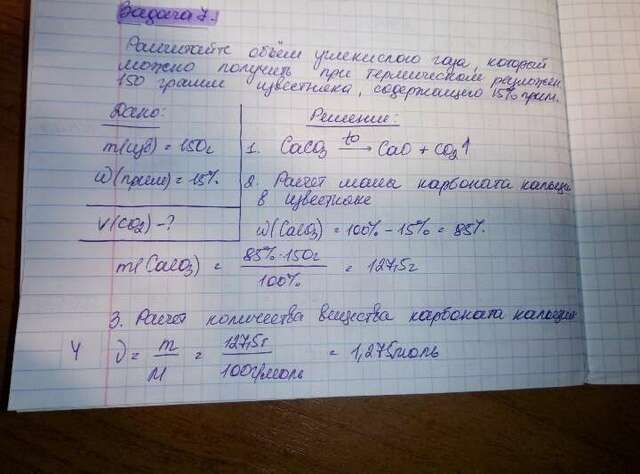 Задача 7.
Рассчитайте объём углекислого газа, который
можно получить при термическом разложен
150 грамм известняка, содержащего 15% прим.
Дано:
Решение:
m(изв) = 150г
1. CaCO3 t° → CaO + CO2↑
ω(прим) = 15%
2. Расчет массы карбоната кальция
в известняке
V(CO2) - ?
ω(CaCO3) = 100% - 15% = 85%.
m(CaCO3) = 85%·150г / 100% = 127,5г
3. Расчет количества вещества карбоната кальция
ν = m / M = 127,5г / 100г/моль = 1,275моль